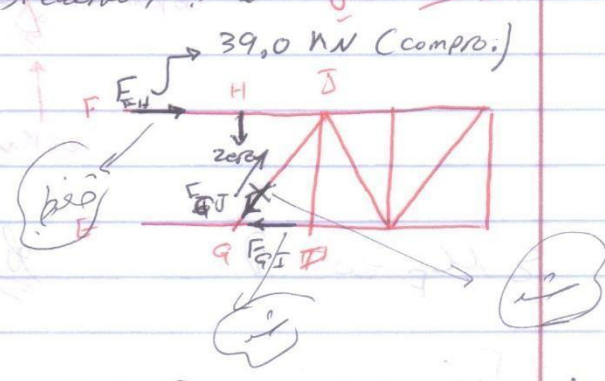 39,0 KN (compro.)
F F_FH H J
zero
F_GJ
E G F_GI I
ضغط
شد
شد